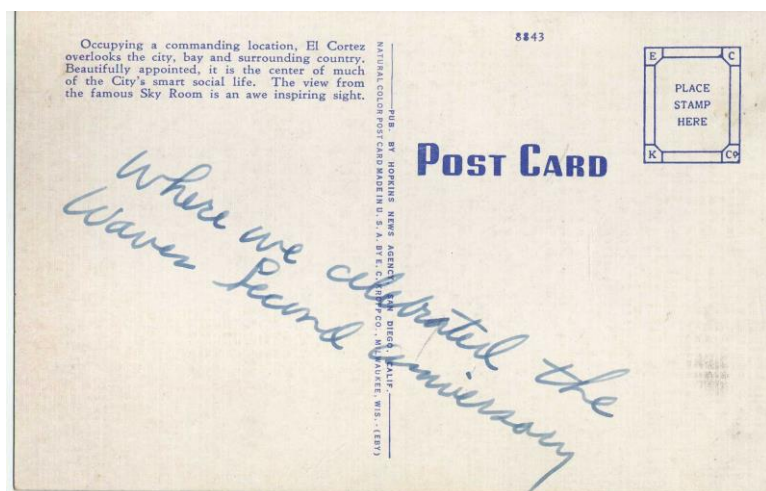 Occupying a commanding location, El Cortez
overlooks the city, bay and surrounding country.
Beautifully appointed, it is the center of much
of the City's smart social life. The view from
the famous Sky Room is an awe inspiring sight.
8843
E C
PLACE
STAMP
HERE
K Co
POST CARD
PUB. BY HOPKINS NEWS AGENCY, SAN DIEGO, CALIF.
NATURAL COLOR POST CARD MADE IN U. S. A. BY E. C. KROPP CO., MILWAUKEE, WIS. - (EBY)
Where we celebrated the
Waves Second anniversary